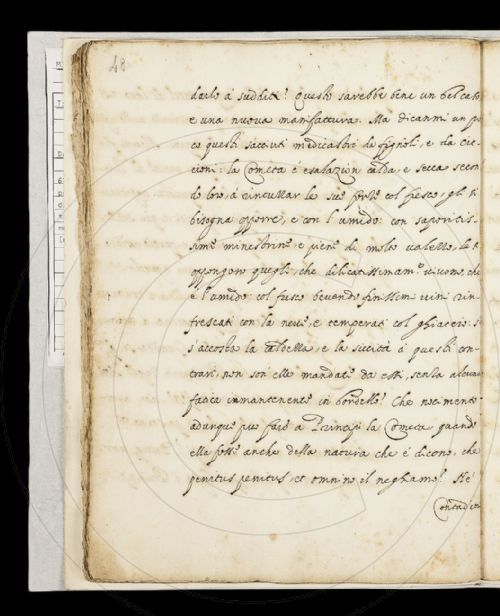 48
darlo à sudditi? Questo sarebbe bene un bel caso
e una nuova manifattura. Ma dicanmi un po
co questi saccuti medicastri da fignoli, e da cic
cioni: la Cometa é esalazion calda, e secca secon
do loro, à rincullar le sue col fresco, gli si
bisogna opporre, e con l'umido: con saporitis-
sime minestrine e piene di molto
oppongono quegli, che dilicatissimam.e vivono, che
è l'umido col fresco bevendo finissimi vini rin
frescati con la neve, e temperati col ghiaccio: se
s'accosta la caldezza, e la siccità à questi con-
trari, non son elle mandate da essi, senza alcuna
fatica inmantenente in bordello? Che nocimento
adunque può fare a Principi la Cometa quando
ella fosse anche della natura che é dicono, che
penitus penitus, et omnino il neghiamo? Hé
Contadin